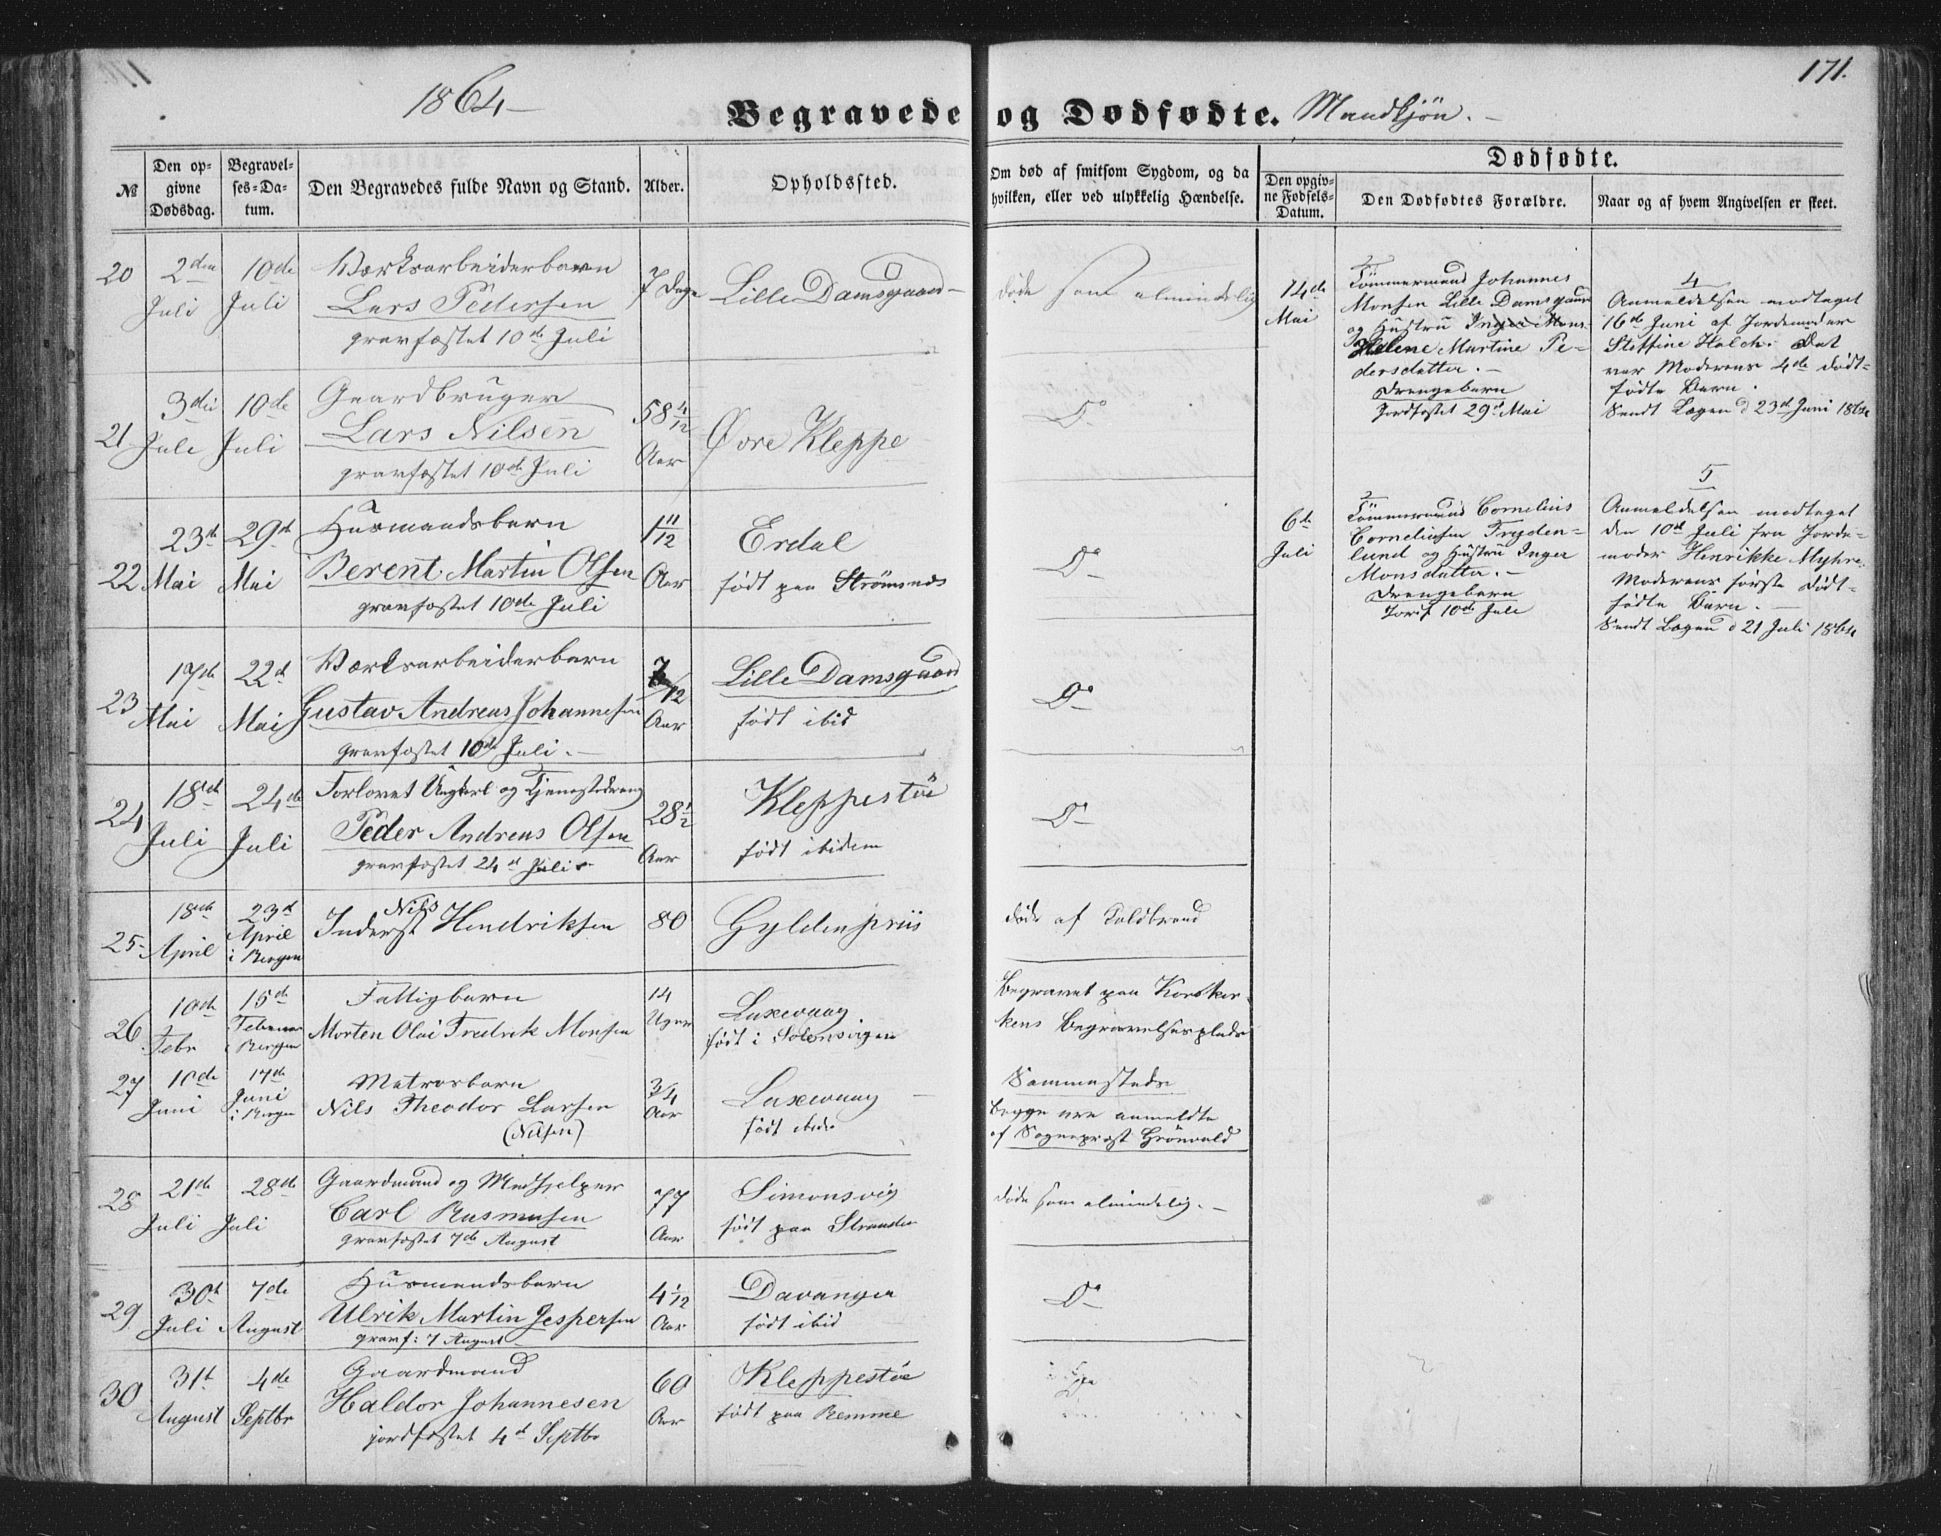 171.
1864
Begravede og Dødfødte. Mandkjön.
№
Den opgivne Dødsdag.
Begravelses-Datum.
Den Begravedes fulde Navn og Stand.
Alder.
Opholdssted.
Om død af smitsom Sygdom, og da hvilken, eller ved ulykkelig Hændelse.
Dødfødte.
Den opgivne Fødsels-Datum.
Den Dødfødtes Forældre.
Naar og af hvem Angivelsen er skeet.
20 2den Juli 10de Juli Værksarbeiderbarn
Lars Pedersen
gravfæstet 10de Juli
7 Dage Lille Damsgaard
døde som almindelig
21 3die Juli 10de Juli Gaardbruger
Lars Nilsen
gravfæstet 10de Juli
58 4/12 Aar Øvre Kleppe
Do
22 23d Mai 29d Mai Husmandsbarn
Berent Martin Olsen
gravfæstet 10de Juli
1 11/12 Aar Erdal
født paa Strømsnes
Do
23 17de Mai 22d Mai Værksarbeiderbarn
Gustav Andreas Johannesen
gravfæstet 10de Juli.
7/12 Aar Lille Damsgaard
født ibid
Do
24 18de Juli 24de Juli Forlovet Ungkarl og Tjenestedreng
Peder Andreas Olsen
gravfæstet 24d Juli
28 1/2 Aar Kleppestøe
født ibidem
Do
25 18de April 23d April i Bergen
Inderst Nils Hendriksen
80 Gyldenpriis
døde af Koldbrand
26 10de Febr 15de Februar i Bergen
Fattigbarn
Morten Olai Fredrik Monsen
14 Uger Laxevaag
født i Solensvigen
Begravet paa Korskirkens Begravelsesplads
27 10de Juni 17de Juni i Bergen
Matrosbarn
Nils Theodor Larsen
(Nilsen)
3/4 Aar Laxevaag
født ibid
Sammesteds
begge ere anmeldte
af Sognepræst Grönvold
28 21de Juli 28de Juli Gaardmand og Medhjelper
Carl Rasmusen
gravfæstet 7de August
77 Aar Simonsvig
født paa Stranden
døde som almindelig.
29 30t Juli 7de August Husmandsbarn
Ulrik Martin Jespersen
gravf: 7 August
4 1/12 Aar Davanger
født ibid
Do
30 31t August 4de Septbr Gaardmand
Haldor Johannesen
jordfæstet 4d Septbr
60 Aar Kleppestöe
født paa Remme
14de Mai
Tömmermand Johannes
Monsen Lille Damsgaard
og Hustru Inger Mons
Helene Martine Pe-
dersdatter.
Drengebarn
Jordfæstet 29d Mai
4
Anmeldelsen modtaget
16de Juni af Jordemoder
Steffine Holck. Det
var Moderens 4de død-
fødte Barn.
Sendt Lægen d 23d Juni 1864
6te Juli
Tömmermand Cornelius
Corneliusen Fryden-
lund og Hustru Inger
Monsdatter.
Drengebarn
Jordf 10de Juli
5
Anmeldelsen modtaget
den 10de Juli fra Jorde-
moder Henrikke Myhre.
Moderens første død-
fødte Barn.
Sendt Lægen d 21 Juli 1864